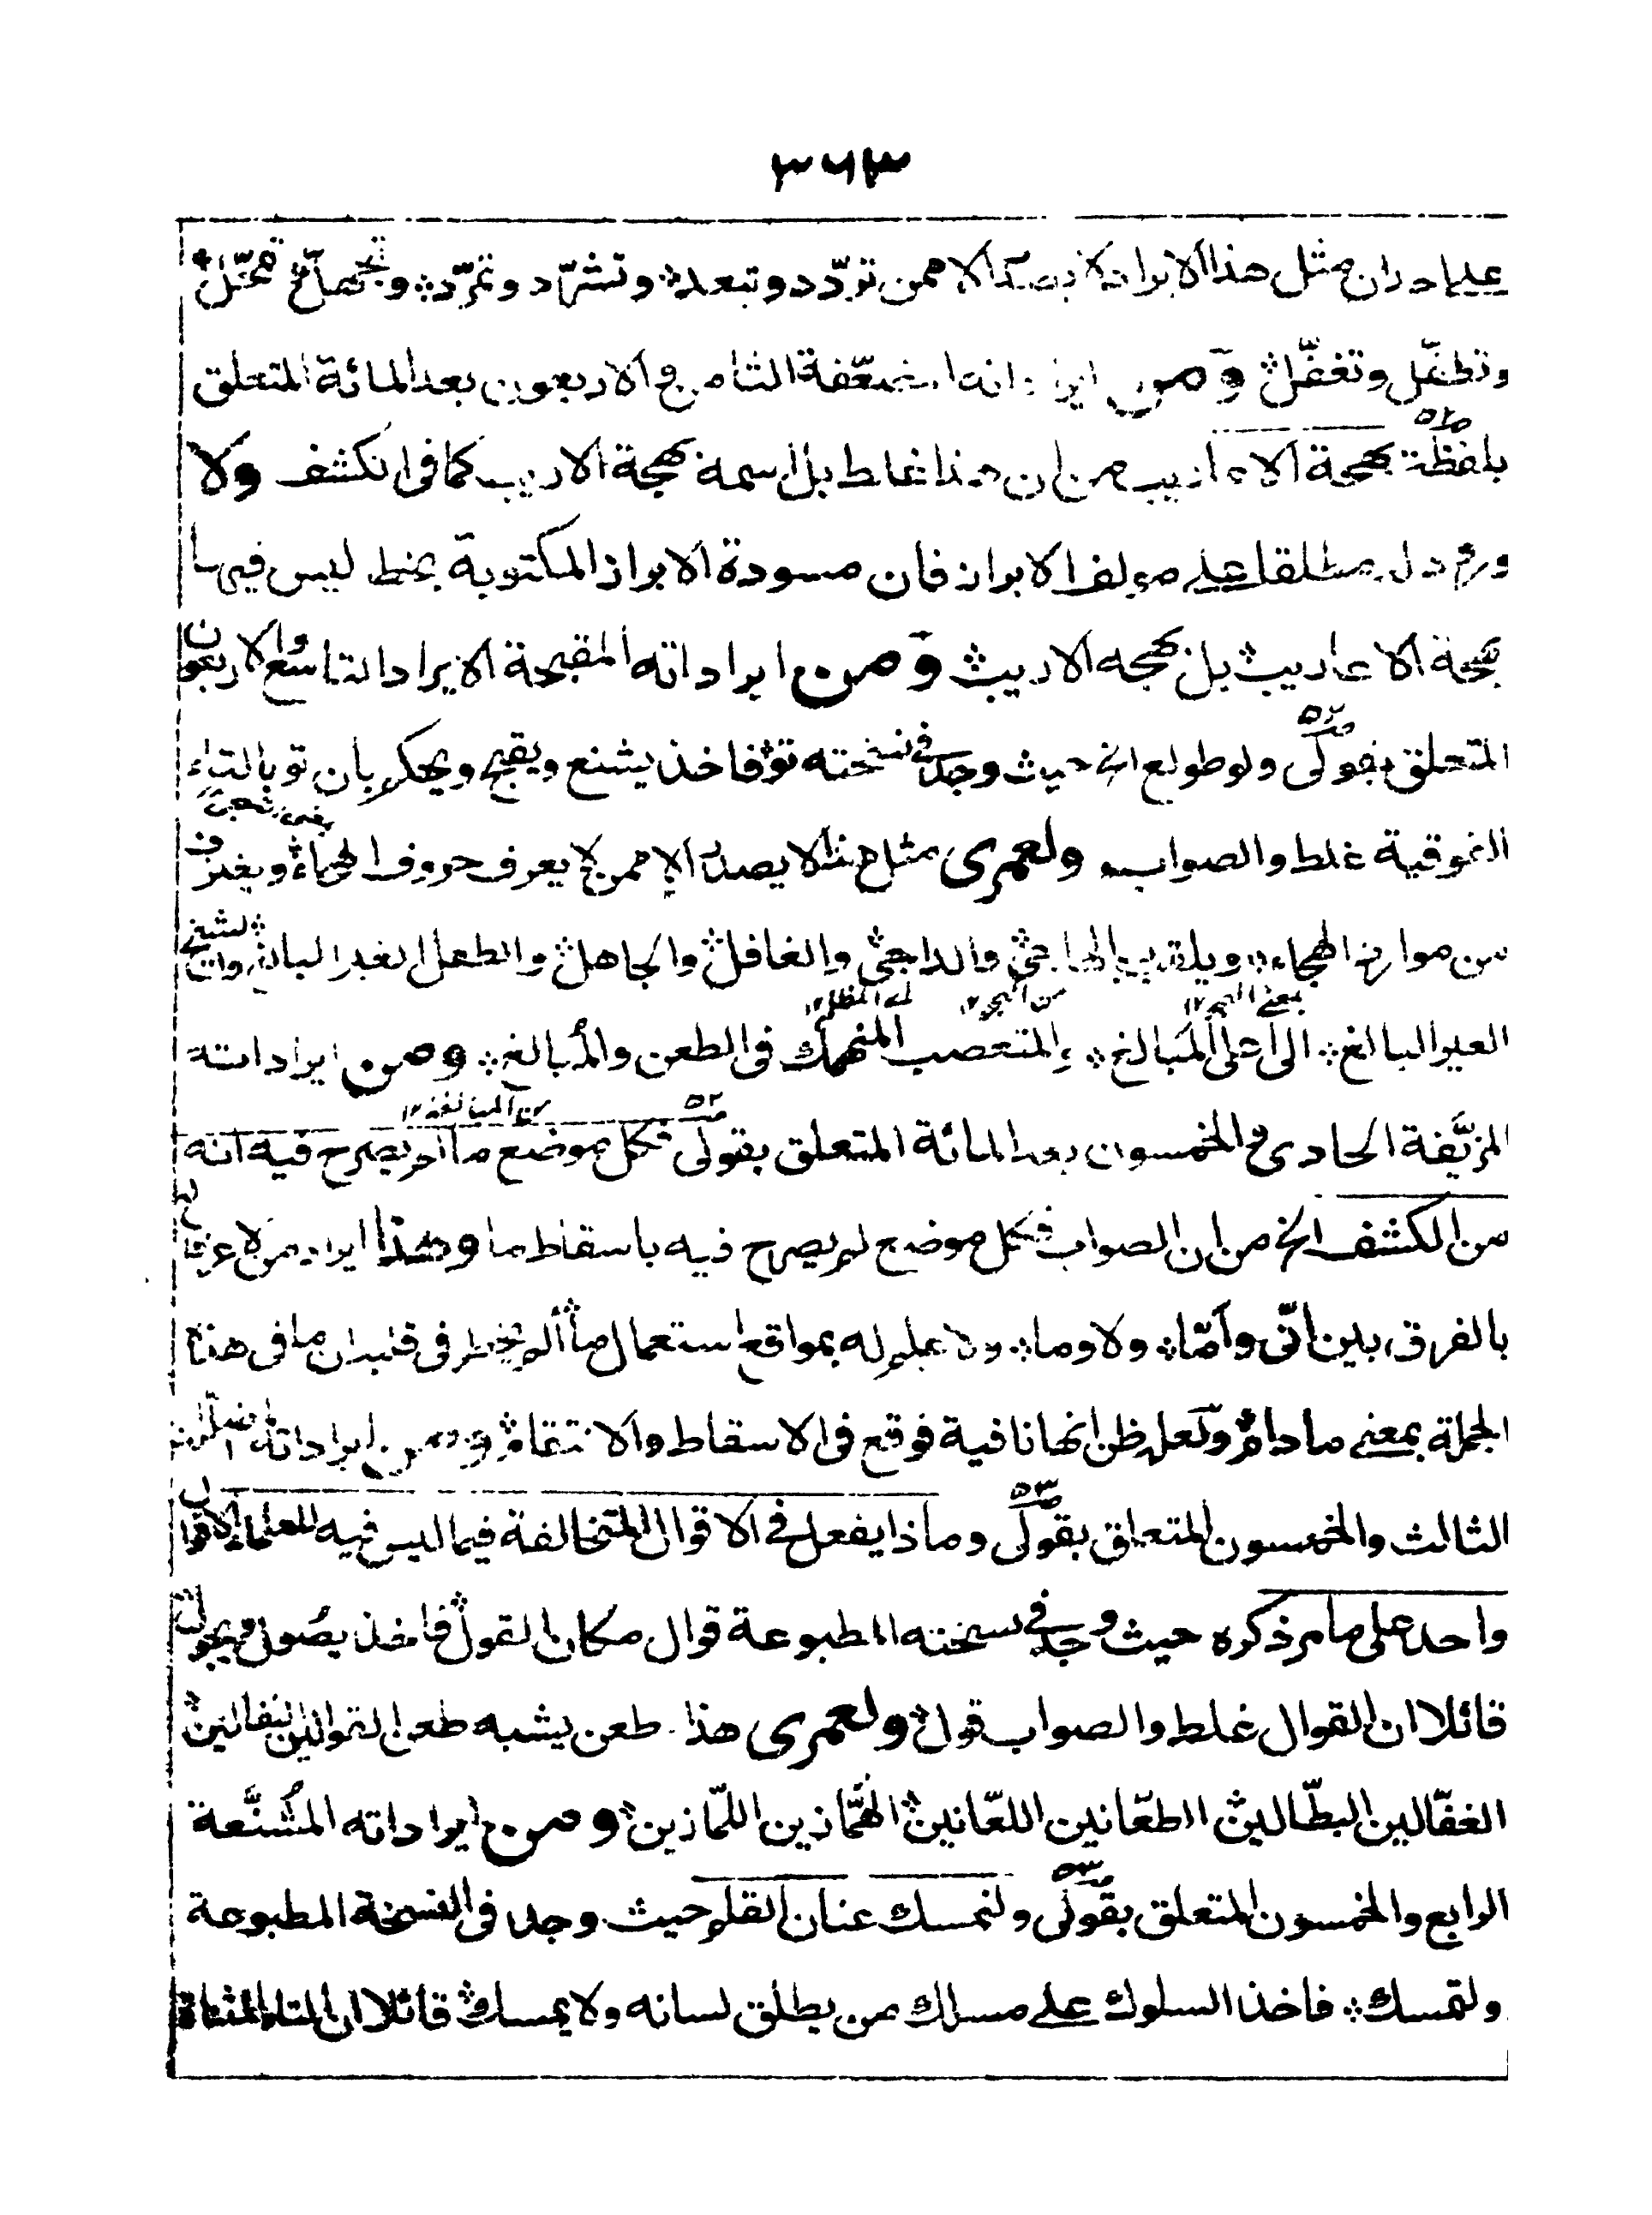 ٣٦٣
مثل هذا الايراد لا يصدر الا ممن تردّد وتبعد وتشرّد وتمرّد
وتطفّل وتغفّل ومن المضعّفة الثامن والاربعون بعد المائة المتعلق
بلفظة بهجة الاعاريب من ان هذا غلط بل اسمه بهجة الاريب كما فى الكشف ولا
مطلقا على مؤلف الابراز فان مسودة الابراز المكتوبة بخط ليس فيها
بهجة الاعاريب بل بهجه الاريب ومن ايراداته المقبحة الايراد التاسع والاربعون
صـ٥٢
المتعلق بقولى ولو طولع الخ حيث وجد فى نسخته تو فاخذ يشنع ويقبح ويحكم بان تو بالتاء
الفوقية غلط والصواب ولعمرى مثل هذا لا يصدر الا ممن لا يعرف حروف الهجاء ويغترف
من موارد الهجاء ويلقب بالهاجى والداجى والغافل والجاهل والطفل الغير البالغ والشيخ
الغير البالغ الى اعلى المبالغ والمتعصب المنهمك فى الطعن والمبالغ ومن ايراداته
صـ٥٢ من المبالغة ١٢
المزيّفة الحادى والخمسون بعد المائة المتعلق بقولى فكل موضع ما لم يصرح فيه انه
من الكشف الخ من ان الصواب فكل موضع لم يصرح فيه باسقاط ما وهذا ايراد من لا عرفان
بالفرق بين انّى وامّا ولا وما ولا علم له بمواقع استعمال ما الم يخطر فى قلبه ان ما فى هذه
الجملة بمعنى مادام ولعله ظن انها نافية فوقع فى الاسقاط والانتقام ومن ايراداته
صـ٥٣
الثالث والخمسون المتعلق بقولى وماذا يفعل فى الاقوال المتخالفة فيما ليس فيه للعلماء الا قول
واحد على ما مر ذكره حيث وجد فى نسخته المطبوعة قوال مكان القول فاخذ يصول ويجول
قائلا ان القوال غلط والصواب قول ولعمرى هذا طعن يشبه طعن القوالين النقالين
الغفّالين البطّالين الطعّانين اللعّانين الهمّازين اللمّازين ومن ايراداته المشنّعة
صـ٥٣
الرابع والخمسون المتعلق بقولى ولنمسك عنان القلم حيث وجد فى النسخة المطبوعة
ولتمسك فاخذ السلوك على مسلك من يطلق لسانه ولا يمسك قائلا ان التاء المثناة